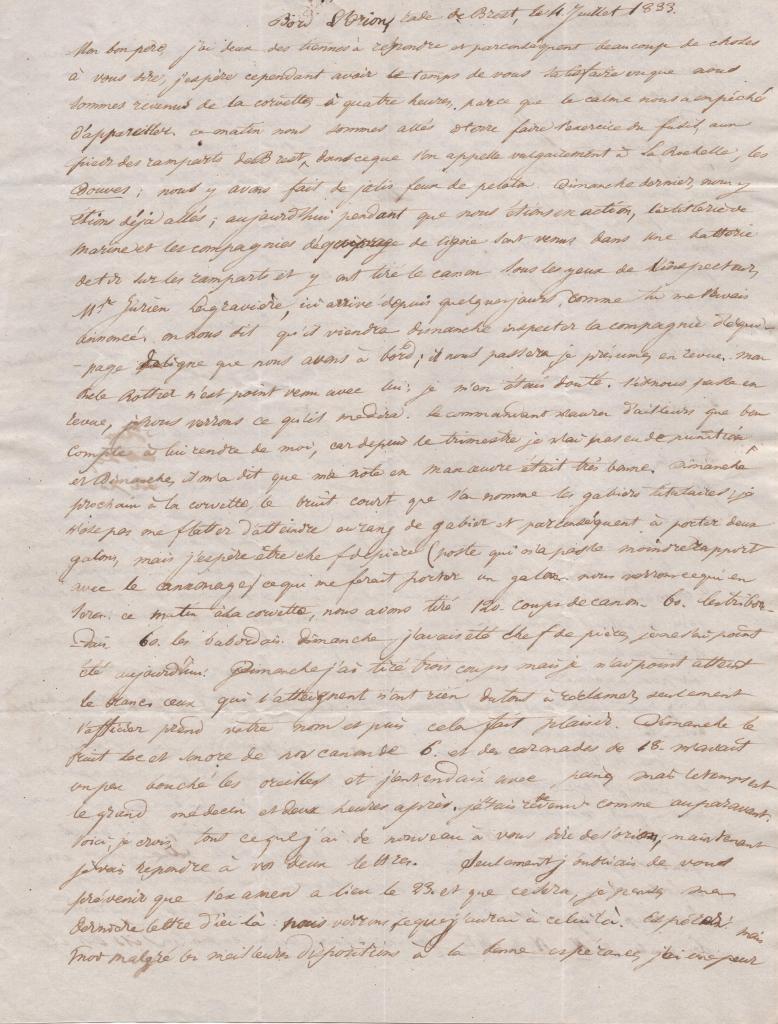 Bord L'Orion, rade de Brest, le 4 Juillet 1833.
Mon bon père, j'ai deux des tiennes à répondre et parconséquent beaucoup de choses
à vous dire, j'espère cependant avoir le temps de vous satisfaire vu que nous
sommes revenus de la corvette à quatre heures, parce que le calme nous a empêché
d'appareiller. ce matin nous sommes allés à terre faire l'exercice du fusil, aux
pieds des remparts de Brest, dans ce que l'on appelle vulgairement à La Rochelle, les
Douves; nous y avons fait de jolis feux de peloton. Dimanche dernier, nous y
étions déjà allés; aujourd'hui pendant que nous étions en action, l'artillerie de
marine et les compagnies d'équipage de ligne sont venus dans une batterie
de tir sur les remparts et y ont tiré le canon sous les yeux de l'inspecteur,
Mr. Jurien Lagravière, ici arrivé depuis quelques jours, comme tu me l'avais
annoncé. on nous dit qu'il viendra dimanche inspecter la compagnie d'équi-
-page de ligne que nous avons à bord; il nous passera je présume, en revue. mon
Rothier n'est point venu avec lui; je m'en étais douté. s'il nous passe en
revue, nous verrons ce qu'il me dira. le commandant n'aura d'ailleurs que bon
compte à lui rendre de moi, car depuis le trimestre je n'ai pas eu de punition
et Dimanche, il m'a dit que ma note en manœuvre était très bonne. Dimanche
prochain à la corvette, le bruit court que l'on nomme les gabiers titulaires; je
n'ose pas me flatter d'atteindre au rang de gabier et parconséquent à porter deux
galons, mais j'espère être chef de pièce (poste qui n'a pas le moindre rapport
avec le canonnage) ce qui me ferait porter un galon. nous verrons ce qui en
sera. ce matin à la corvette, nous avons tiré 120 coups de canon. 60. les tribor-
-dais 60. les babordais. dimanche, j'avais été chef de pièce, je ne l'ai point
été aujourd'hui. Dimanche j'ai tiré trois coups mais je n'ai point atteint
le blanc; ceux qui l'atteignent n'ont rien du tout à réclamer, seulement
l'officier prend votre nom et puis cela fait plaisir. Dimanche le
bruit sec et sonore de nos canons de 6. et des caronades de 18. m'avait
un peu bouché les oreilles et j'entendais avec peine, mais le temps est
le grand médecin et deux heures après, j'étais comme auparavant.
voici, je crois, tout ce que j'ai de nouveau à vous dire de l'orion, maintenant
je vais répondre à vos deux lettres. Seulement j'oubliais de vous
prévenir que l'examen a lieu le 23. et que ce sera, je pense, ma
dernière lettre d'ici là. nous verrons ce que j'aurai à celui-là. Espérons mais
malgré les meilleures dispositions à la bonne espérance, j'ai une peur